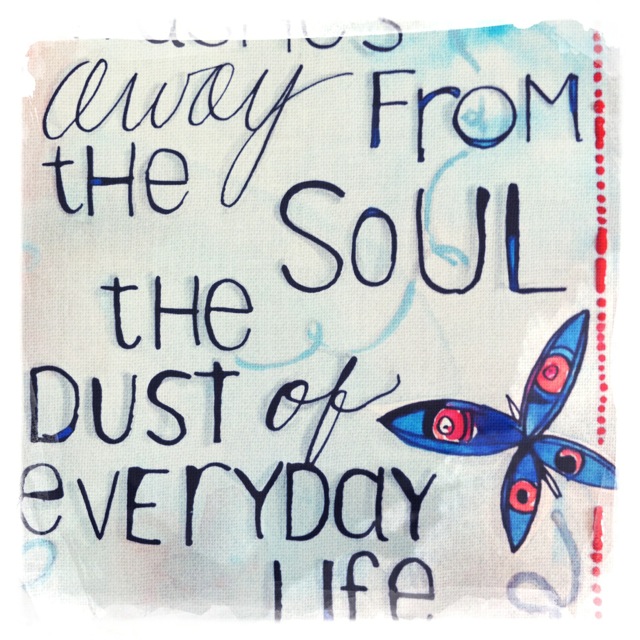 away FroM
tHe
SoUL
tHe
DUST of
eVErYDaY
LIfe